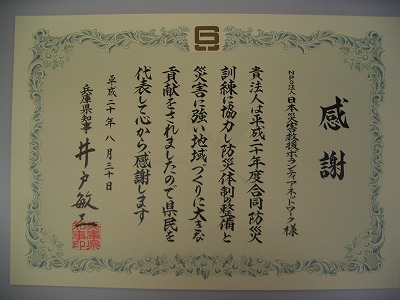 感謝
NPO法人日本災害救援ボランティアネットワーク様
貴法人は平成二十年度合同防災
訓練に協力し防災体制の整備と
災害に強い地域づくりに大きな
貢献をされましたので県民を
代表して心から感謝します
平成二十年八月三十日
兵庫県知事 井戸敏三